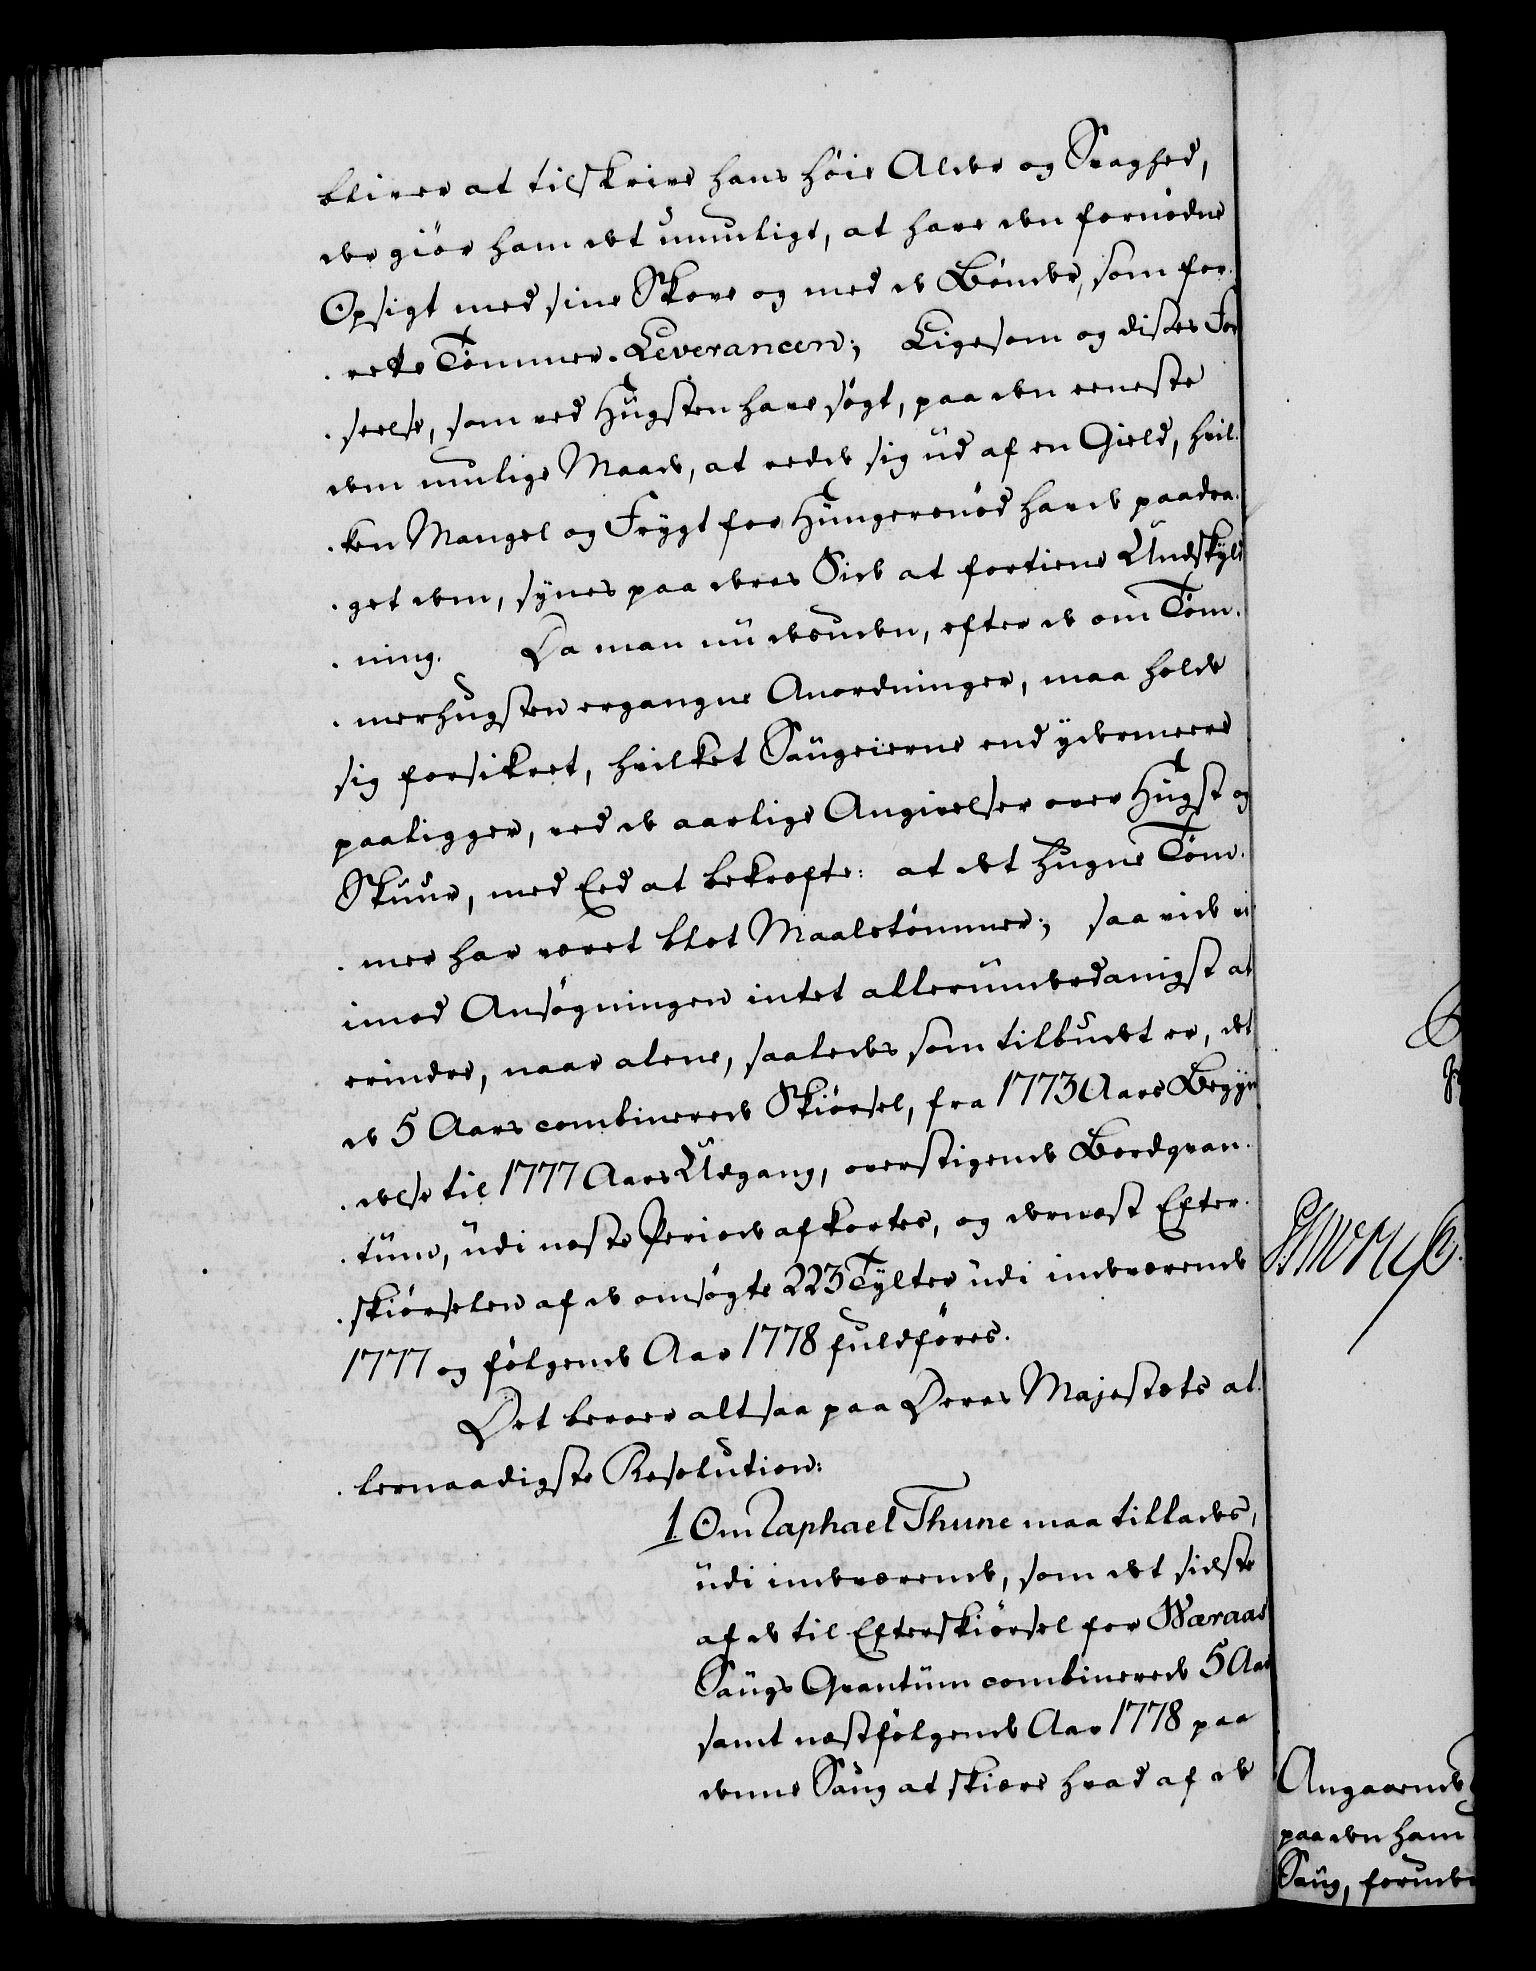 bliver at tilskrive hans høie Alder og Svaghed,
der giør ham det umuligt, at have den fornødne
Opsigt med sine Skove og med de Bønder, som for-
rette Tømmer-Leverancen; Ligesom og disses For-
seelse, som ved Hugsten have søgt, paa den eeneste
dem mulige Maade, at redde sig ud af en Gield, hvil-
ken Mangel og Frygt for Hungersnød havde paadra-
get dem, synes paa deres Side at fortiene Undskyld-
ning. Da man nu desuden, efter de om Tøm-
merhugsten ergangne Anordninger, maa holde
sig forsikret, hvilket Saugeierne end ydermeere
paaligger, ved de aarlige Angivelser over Hugst og
Skuur, med Eed at bekræfte: at det hugne Tøm-
mer har været blot Maalstømmer; saa vide vi
imod Ansøgningen intet allerunderdanigst at
erindre, naar alene, saaledes som tilbudet er, det
de 5 Aars combinerede Skiørsel, fra 1773 Aars Begyn-
delse til 1777 Aars Udgang, overstigende Bordqvan-
tum, udi næste Periode afkortes, og dernæst Efter-
skiørselen af de omsøgte 223 Tylter udi indeværende
1777 og følgende Aar 1778 fuldføres.
Det beroer altsaa paa Deres Majestæts al-
lernaadigste Resolution:
1. Om Raphael Thune maa tillades,
udi indeværende, som det sidste
af de til Efterskiørsel for Wæraas
Saugs Qvantum combinerede 5 Aar
samt næstfølgende Aar 1778 paa
denne Saug at skiære hvad af de
Angaaende
paa den ham
Saug, foruden